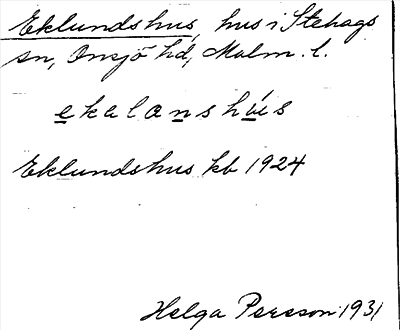 Eklundshus, hus i Stehags
sn, Onsjö hd, Malm. l.
ekalanshúis
Eklundshus kb 1924
Helga Persson 1931